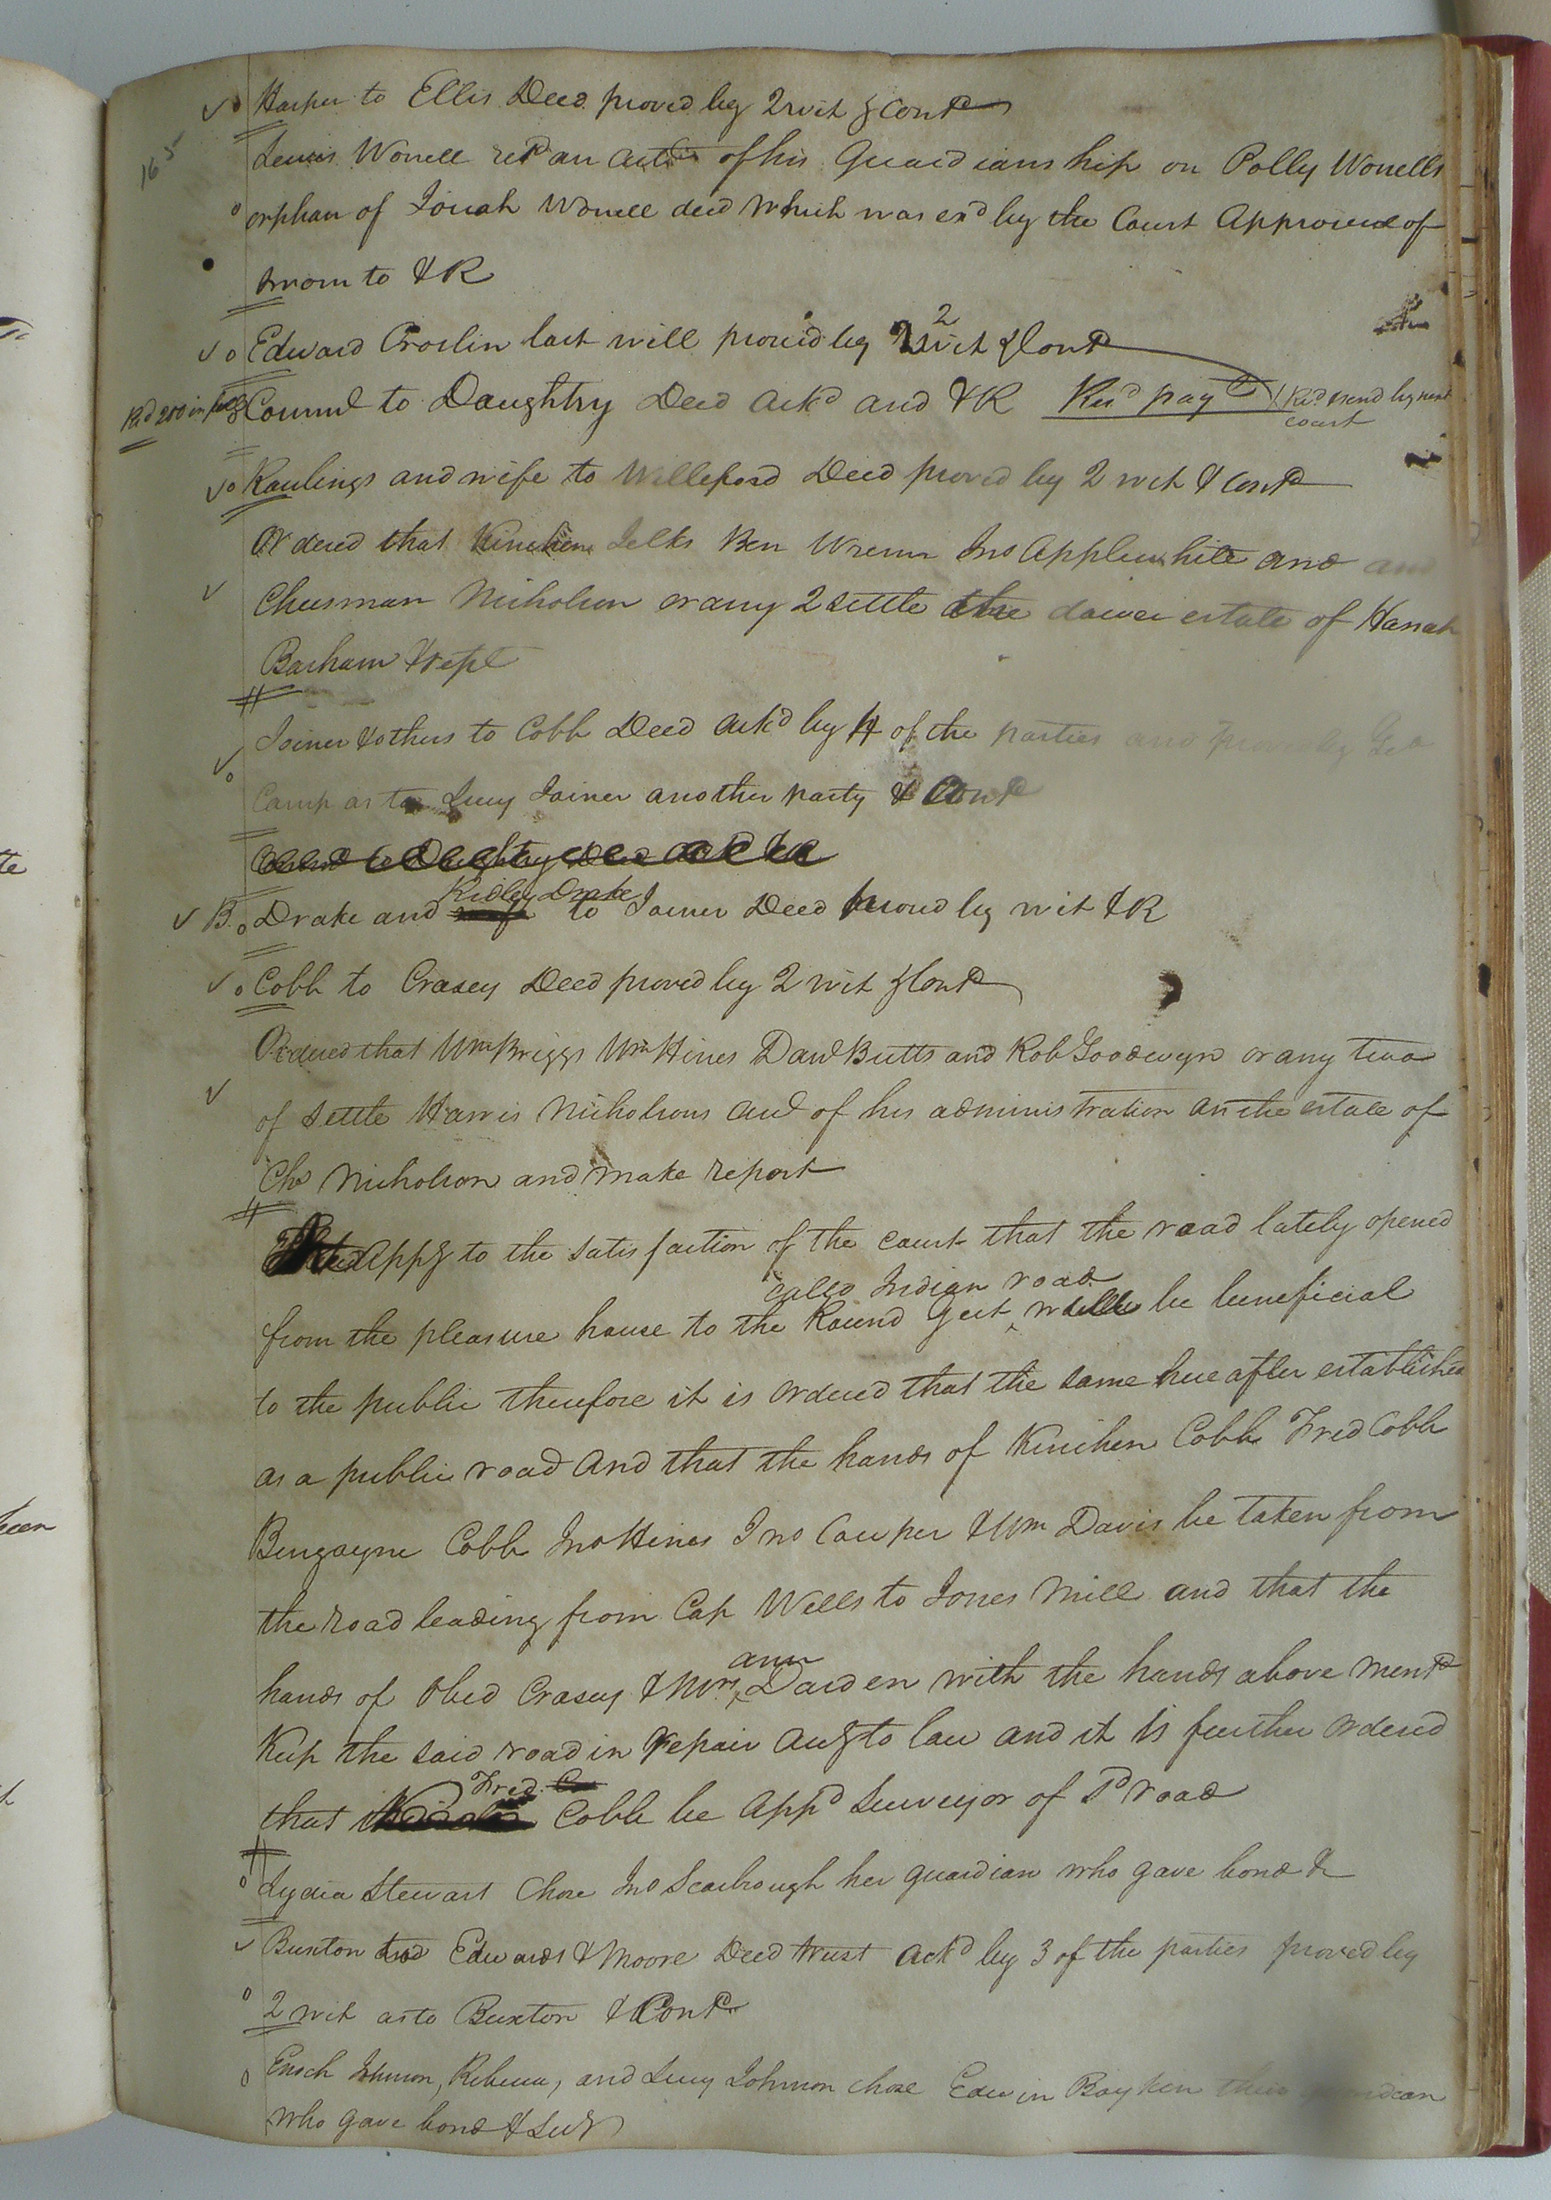 165
Harper to Ellis Deed proved by 2 wit & Contd
Lewis Worrell retd an actt of his Guardianship on Polly Worrells
orphan of Josiah Worrell decd which was exd by the Court Approved of
sworn to & R
Edward Croslin last will proved by 2 wit & Contd
2
Recd 200 in
Council to Daughtry Deed ackd and & R Recd pay
court
Rawlings and wife to Willeford Deed proved by 2 wit & Contd
Ordered that Kinchen Jelks Ben Wrenn Jno Applewhite and and
Cheesman Nicholson or any 2 settle the dower estate of Hanah
Barham & rept
Joiner & others to Cobb Deed ackd by 4 of the parties and proved by Geo
Camp as to Lucy Joiner another party & Contd
Council to Daughtry Deed ackd & R
Ridley Drake
B. Drake and wife to Joiner Deed proved by wit & R
Cobb to Crasey Deed proved by 2 wit & Contd
Ordered that Wm Briggs Wm Hines Danl Butts and Rob Goodwyn or any two
of settle Harris Nicholsons acct of his administration on the estate of
Chs Nicholson and make report
Appg to the satisfaction of the court that the road lately opened
called Indian road
from the pleasure house to the Round Gut will be beneficial
to the public therefore it is ordered that the same hereafter established
as a public road and that the hands of Kinchen Cobb Fred Cobb
Bengayne Cobb Jno Hines Jno Cowper & Wm Davis be taken from
the road leading from Cap Wells to Jones Mill and that the
ann
hands of Obed Crasey & Mrs Darden with the hands above mentd
Keep the said road in repair acg to law and it is further ordered
Fred Co
that Cobb be appd Surveyor of sd road
Lydia Stewart Chose Jno Scarbrough her guardian who gave bond &
Buxton to Edwards & Moore Deed trust ackd by 3 of the parties proved by
2 wit as to Buxton & Contd
Enoch Johnson, Rebecca, and Lucy Johnson chose Edwin Boykin their guardian
who gave bond & Secy